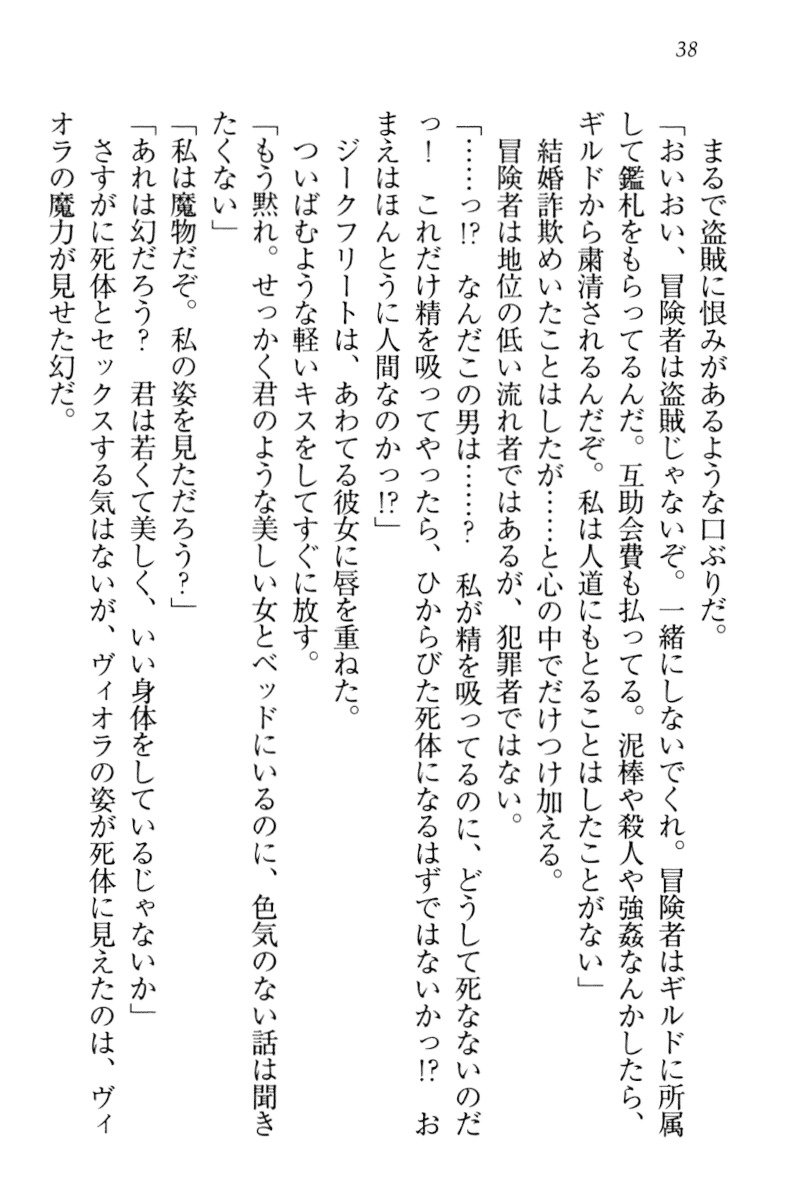 38
まるで盗賊に恨みがあるような口ぶりだ。
「おいおい、冒険者は盗賊じゃないぞ。一緒にしないでくれ。冒険者はギルドに所属
して鑑札をもらってるんだ。互助会費も払ってる。泥棒や殺人や強姦なんかしたら、
ギルドから粛清されるんだぞ。私は人道にもとることはしたことがない」
結婚詐欺めいたことはしたが……と心の中でだけつけ加える。
冒険者は地位の低い流れ者ではあるが、犯罪者ではない。
「……っ!? なんだこの男は……? 私が精を吸ってるのに、どうして死なないのだ
っ! これだけ精を吸ってやったら、ひからびた死体になるはずではないかっ!? お
まえはほんとうに人間なのかっ!?」
ジークフリートは、あわてる彼女に唇を重ねた。
ついばむような軽いキスをしてすぐに放す。
「もう黙れ。せっかく君のような美しい女とベッドにいるのに、色気のない話は聞き
たくない」
「私は魔物だぞ。私の姿を見ただろう?」
「あれは幻だろう? 君は若くて美しく、いい身体をしているじゃないか」
さすがに死体とセックスする気はないが、ヴィオラの姿が死体に見えたのは、ヴィ
オラの魔力が見せた幻だ。